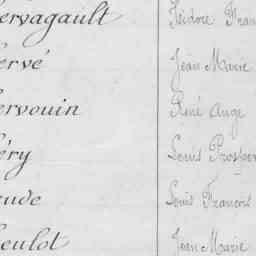 ervagault Isidore Fran
ervé Jean Marie
ervouin René Ange
éry Louis Prosper
ude Louis François
eulot Jean Marie